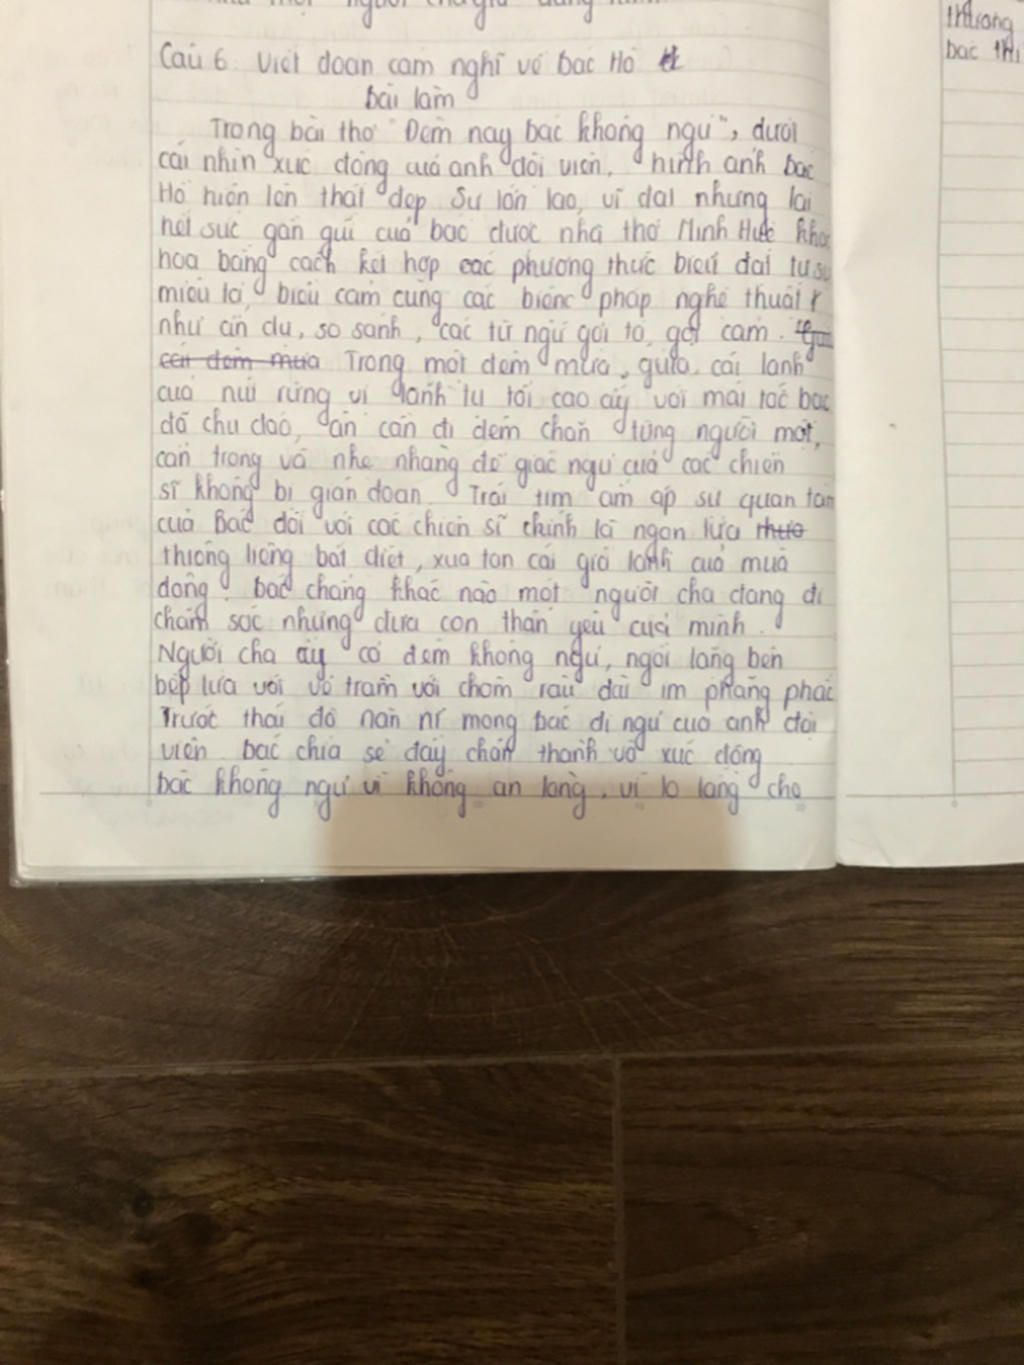 thương
bác thì
Câu 6 Viết đoạn cảm nghĩ về bác Hồ
bài làm
Trong bài thơ "Đêm nay bác không ngủ", dưới
cái nhìn xúc động của anh đội viên, hình ảnh bác
Hồ hiện lên thật đẹp Sự lớn lao, vĩ đại nhưng lại
hết sức gần gũi của bác được nhà thơ Minh Huệ khắc
hoạ bằng cách kết hợp các phương thức biểu đạt tự sự
miêu tả, biểu cảm cùng các biện pháp nghệ thuật
như ẩn dụ, so sánh, các từ ngữ gợi tả, gợi cảm.
cái đêm mưa Trong một đêm mưa, giữa cái lạnh
của núi rừng vị lãnh tụ tối cao ấy với mái tóc bạc
đã chu đáo, ân cần đi dém chăn từng người một,
cẩn trọng và nhẹ nhàng để giấc ngủ của các chiến
sĩ không bị gián đoạn Trái tim ấm áp sự quan tâm
của Bác đối với các chiến sĩ chính là ngọn lửa
thiêng liêng bất diệt, xua tan cái giá lạnh của mùa
đông. bác chẳng khác nào một người cha đang đi
chăm sóc những đứa con thân yêu của mình.
Người cha ấy có đêm không ngủ, ngồi lặng bên
bếp lửa với vẻ trầm với chòm râu dài im phăng phắc
Trước thái độ nằn nì mong bác đi ngủ của anh đội
viên bác chia sẻ đầy chân thành và xúc động
bác không ngủ vì không an lòng, vì lo lắng cho